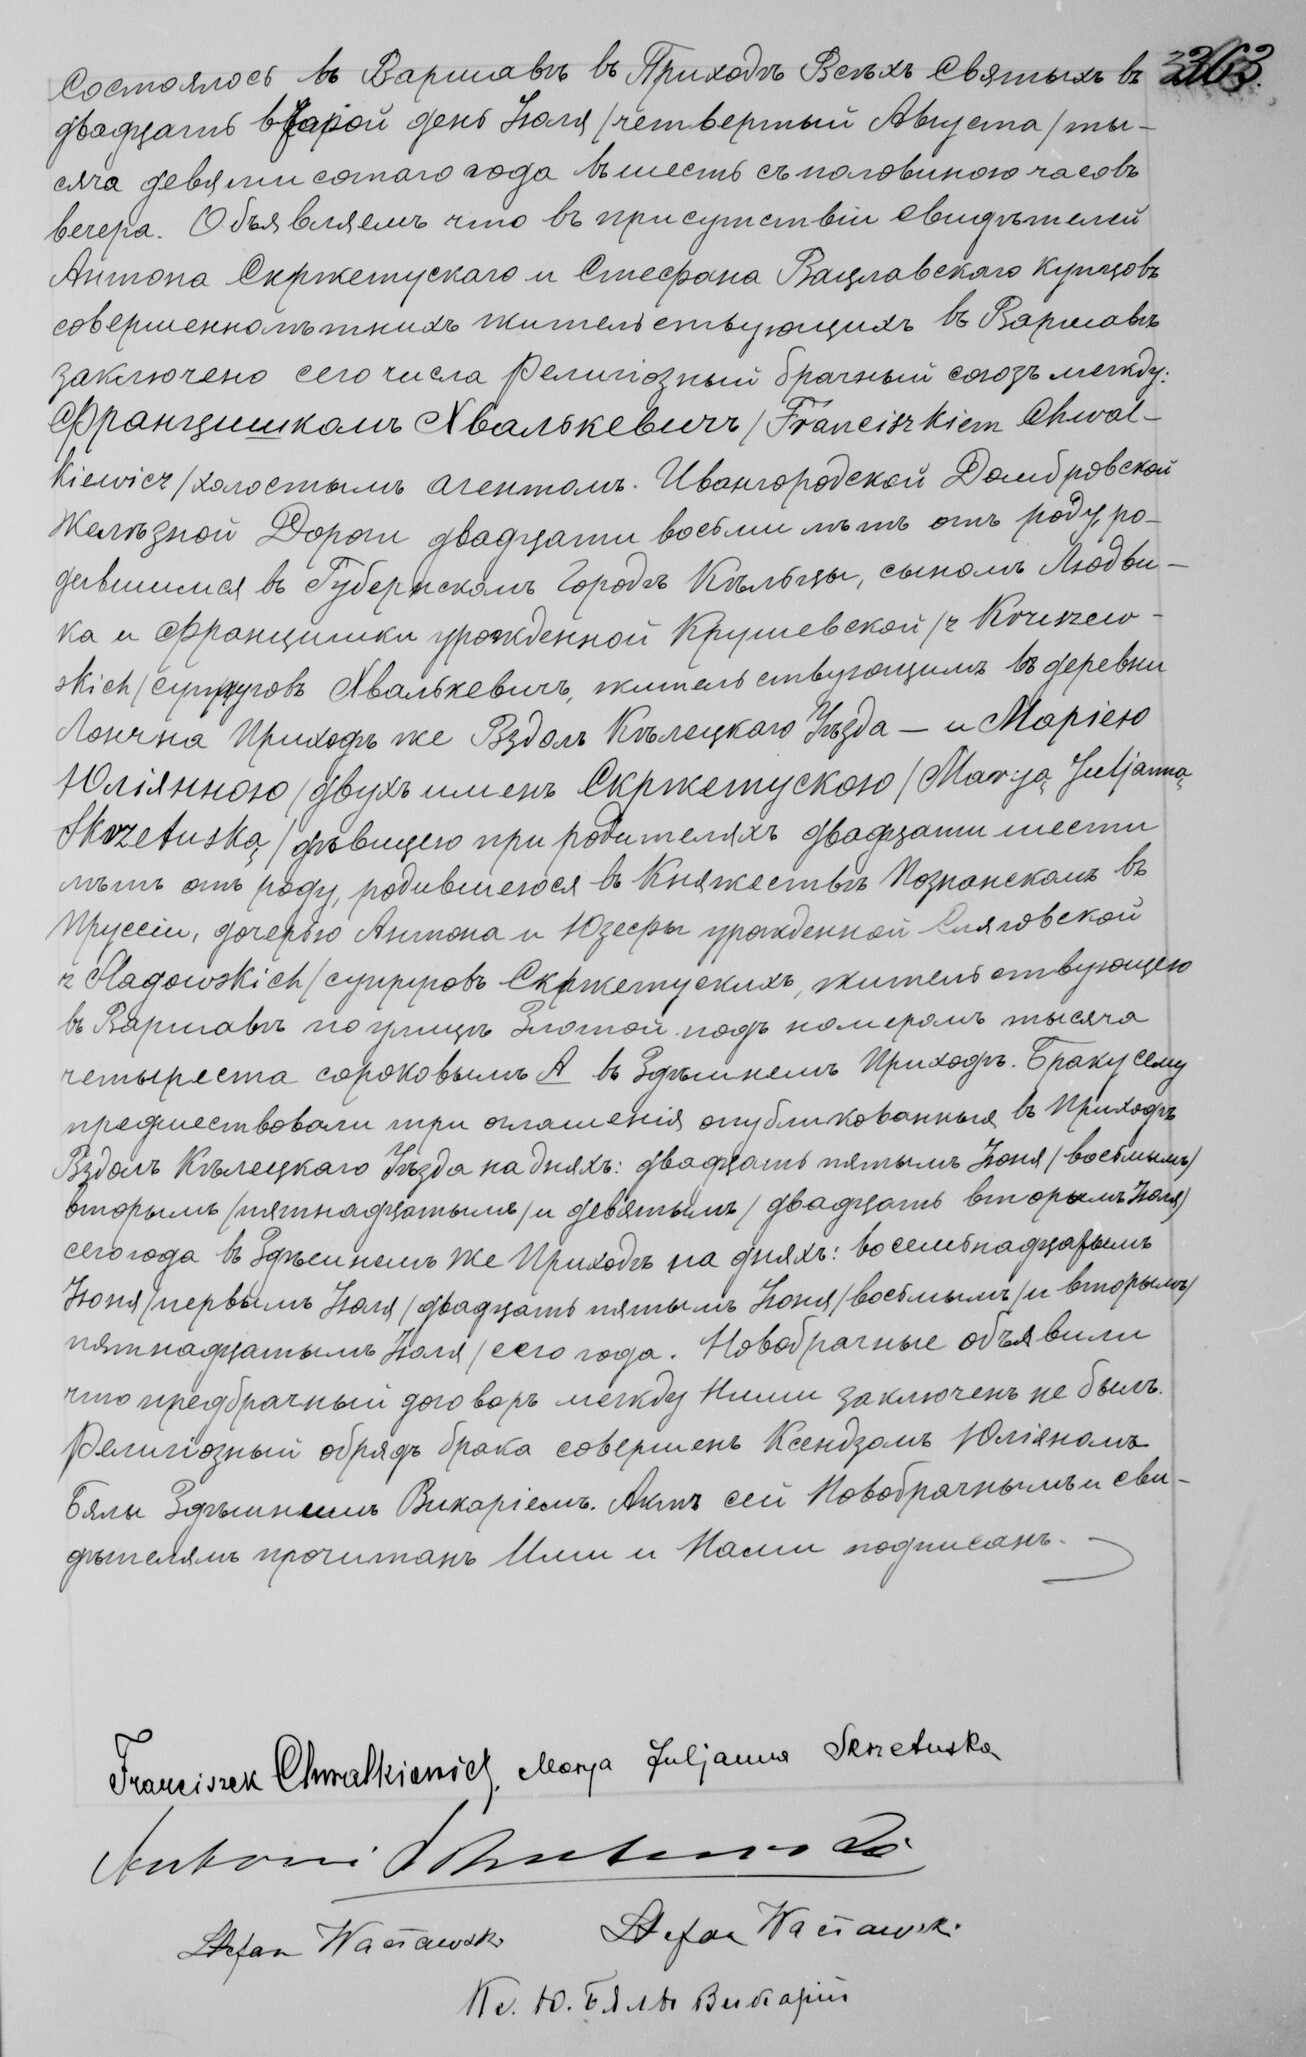 Состоялось въ Варшавѣ въ Приходѣ Всѣхъ Святыхъ въ 363.
двадцать второй день Іюля /четвертый Августа/ ты-
сяча девятисотаго года въ шесть съ половиною часовъ
вечера. Объявляемъ что въ присутствіи свидѣтелей
Антона Скржетускаго и Стефана Вацлавскаго купцовъ
совершеннолѣтнихъ жительствующихъ въ Варшавѣ
заключено сего числа религіозный брачный союзъ между:
Францишкомъ Хвалькевичъ /Franciszkiem Chwal-
kiewicz/ холостымъ агентомъ. Ивангородской Домбровской
Желѣзной Дороги двадцати восьми лѣтъ отъ роду, ро-
дившимся въ Губернскомъ Городѣ Кѣльцы, сыномъ Людви-
ка и Францишки урожденной Крушевской /z Kruszew-
skich/ супруговъ Хвалькевичъ, жительствующимъ въ деревни
Лончна Приходѣ же Вздолъ Кѣлецкаго Уѣзда — и Маріею
Юліянною /двухъ именъ Скржетускою /Maryą Juljanną
Skrzetuską/ дѣвицею при родителяхъ двадцати шести
лѣтъ отъ роду, родившеюся въ Княжествѣ Познанскомъ въ
Пруссіи, дочерью Антона и Юзефы урожденной Слаговской
z Slagowskich/ супруговъ Скржетускихъ, жительствующею
въ Варшавѣ по улицѣ Злотой подъ номеромъ тысяча
четыреста сороковымъ А въ Здѣшнемъ Приходѣ. Браку сему
предшествовали три оглашенія опубликованныя въ Приходѣ
Вздолъ Кѣлецкаго Уѣзда на дняхъ: двадцать пятымъ Іюня /восьмымъ/
вторымъ /пятнадцатымъ/ и девятымъ/ двадцать вторымъ Іюля/
сего года въ Здѣшнемъ же Приходѣ на дняхъ: восемнадцатымъ
Іюня /первымъ Іюля/ двадцать пятымъ Іюня /восьмымъ/ и вторымъ/
пятнадцатымъ Іюля/ сего года. Новобрачные объявили
что предбрачный договоръ между Ними заключенъ не былъ.
Религіозный обрядъ брака совершенъ Ксендзомъ Юліяномъ
Бялы Здѣшнимъ Викаріемъ. Актъ сей Новобрачнымъ и сви-
дѣтелямъ прочитанъ Ими и Нами подписанъ.
Franciszek Chwalkiewicz, Marya Juljanna Skrzetuska
Antoni Skrzetuski
Stefan Wacławski Stefan Wacławski
Кс. Ю. Бялы Викарій